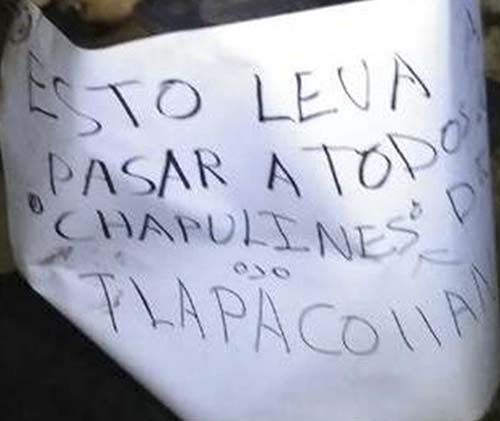 ESTO LEVA
PASAR A TODOS
"CHAPULINES" DE
TLAPACOllAN